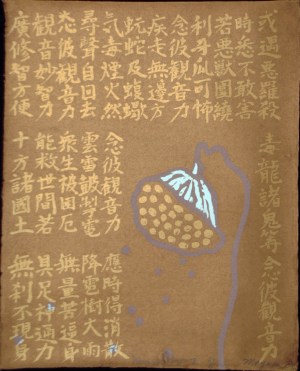 或遇惡羅殺 毒龍諸鬼等 念彼觀音力
時悉不敢害
若惡獸圍繞
利牙爪可怖
念彼觀音力
疾走無邊方
蚖蛇及蝮蠍
氣毒煙火然 念彼觀音力 應時得消散
尋聲自回去 雲雷鼓掣電 降雹澍大雨
念彼觀音力 衆生被困厄 無量苦逼身
觀音妙智力 能救世間苦 具足神通力
廣修智方便 十方諸國土 無刹不現身